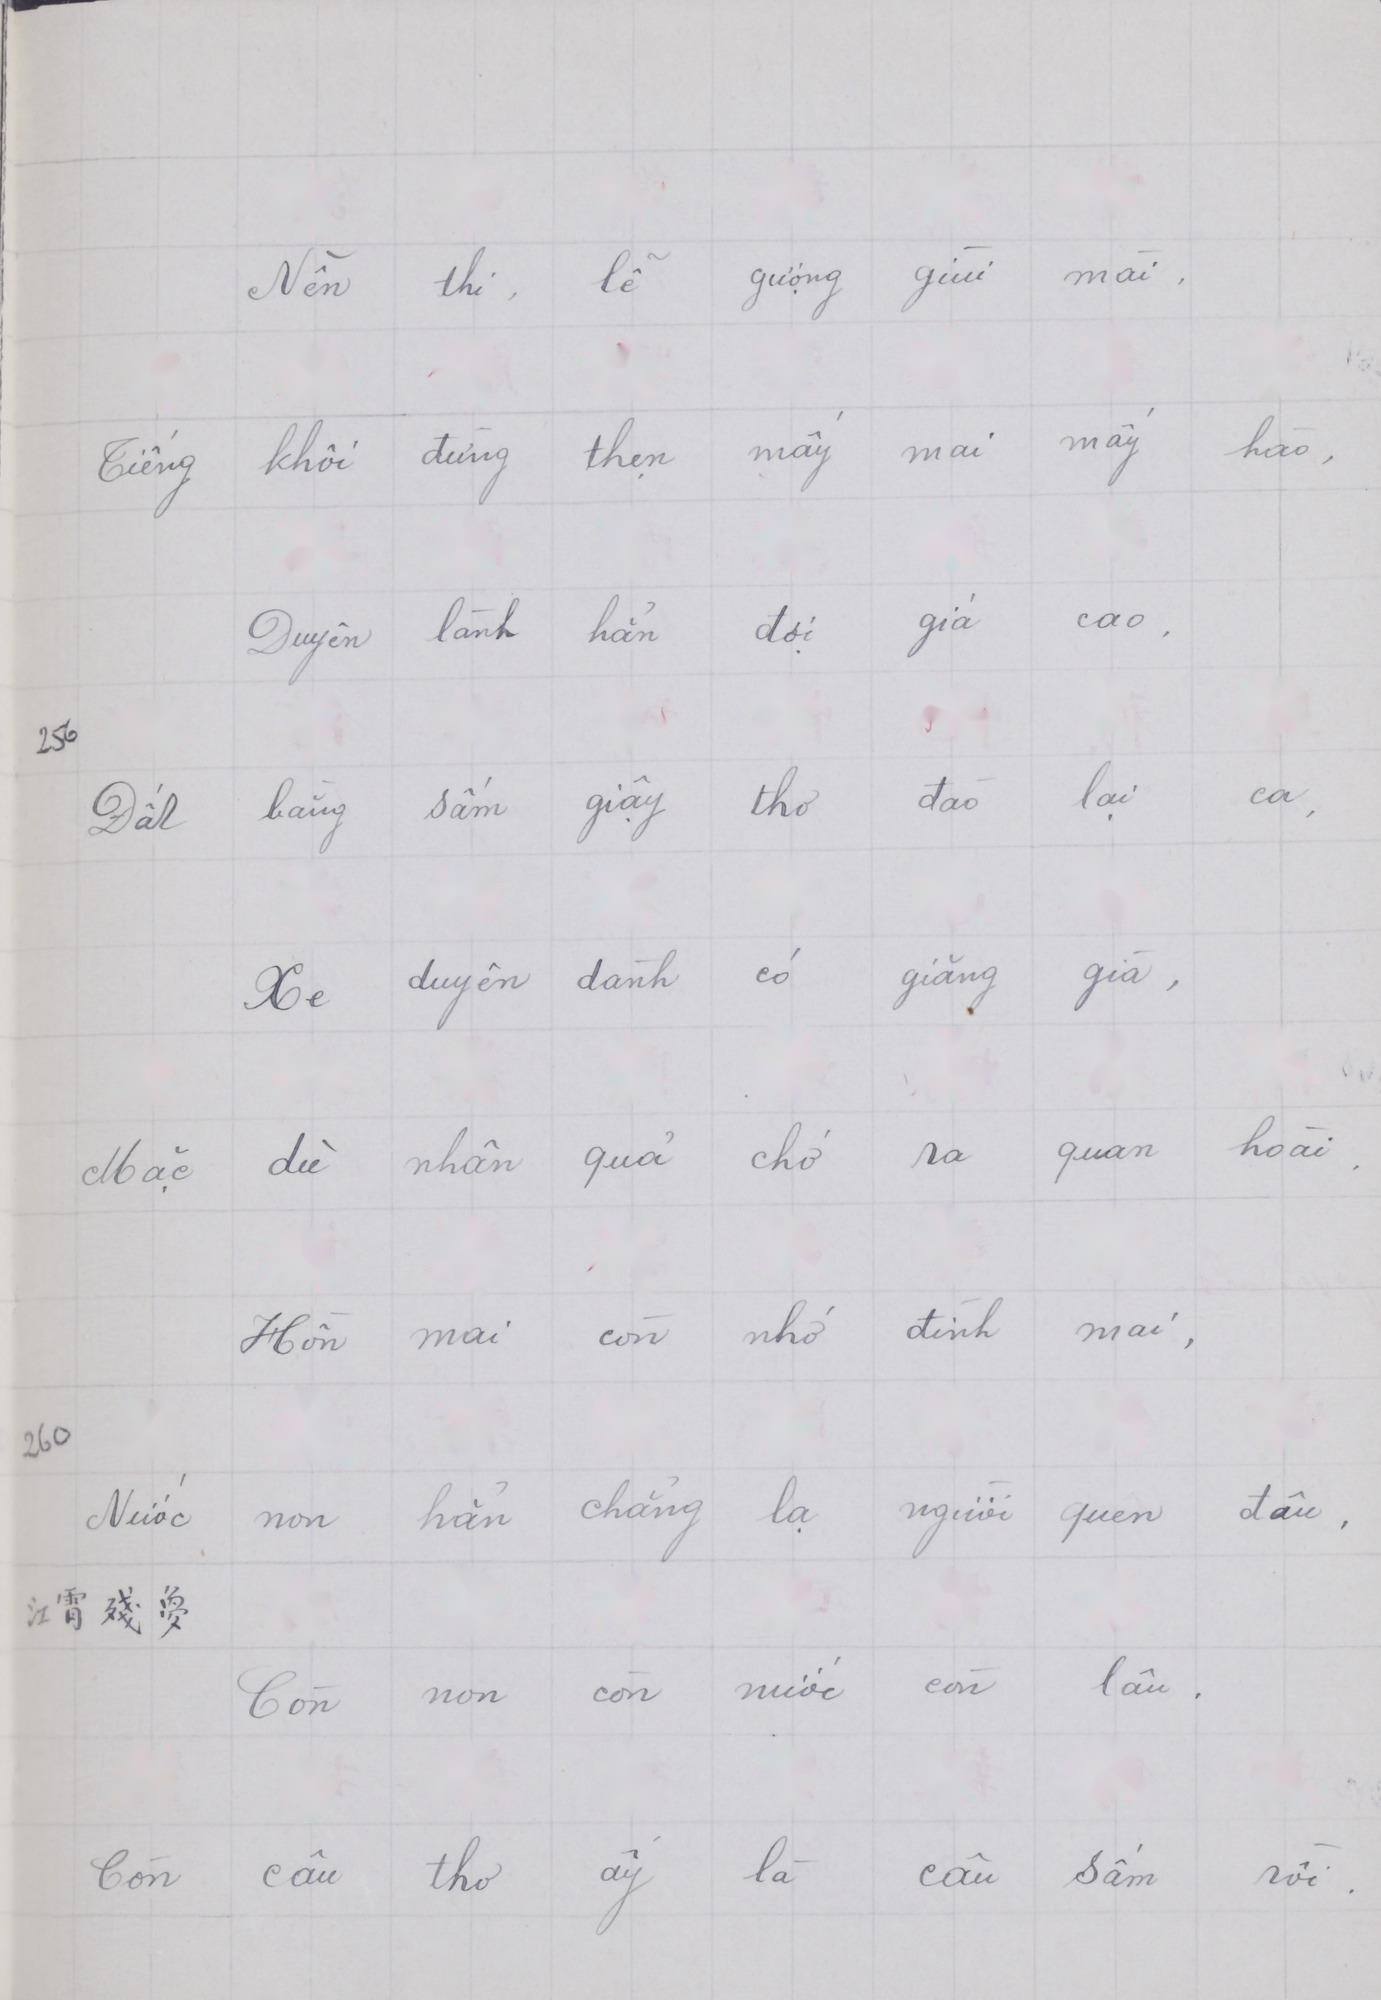 Nền thi, lễ gượng giùi mài,
Tiếng khôi đừng thẹn mấy mai mấy hào,
Duyên lành hẳn đợi giá cao,
256
Đất bằng sấm giậy thơ đào lại ca,
Xe duyên dành có giăng già,
Mặc dù nhân quả chớ ra quan hoài,
Hồn mai còn nhớ đình mai,
260
Nước non hẳn chẳng lạ người quen đâu,
江霄殘夢
Còn non còn nước còn lâu,
Còn câu thơ ấy là câu sấm rồi.